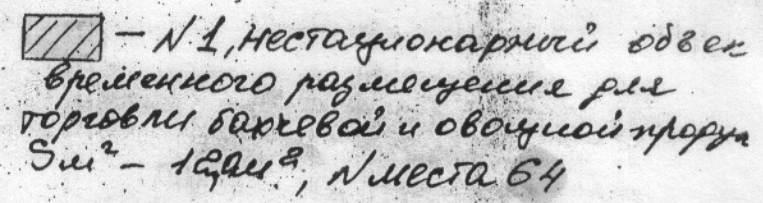 — N 1, нестационарный объек
временного размещения для
торговли бахчевой и овощной продук
Sм² – 12,0м², N места 64